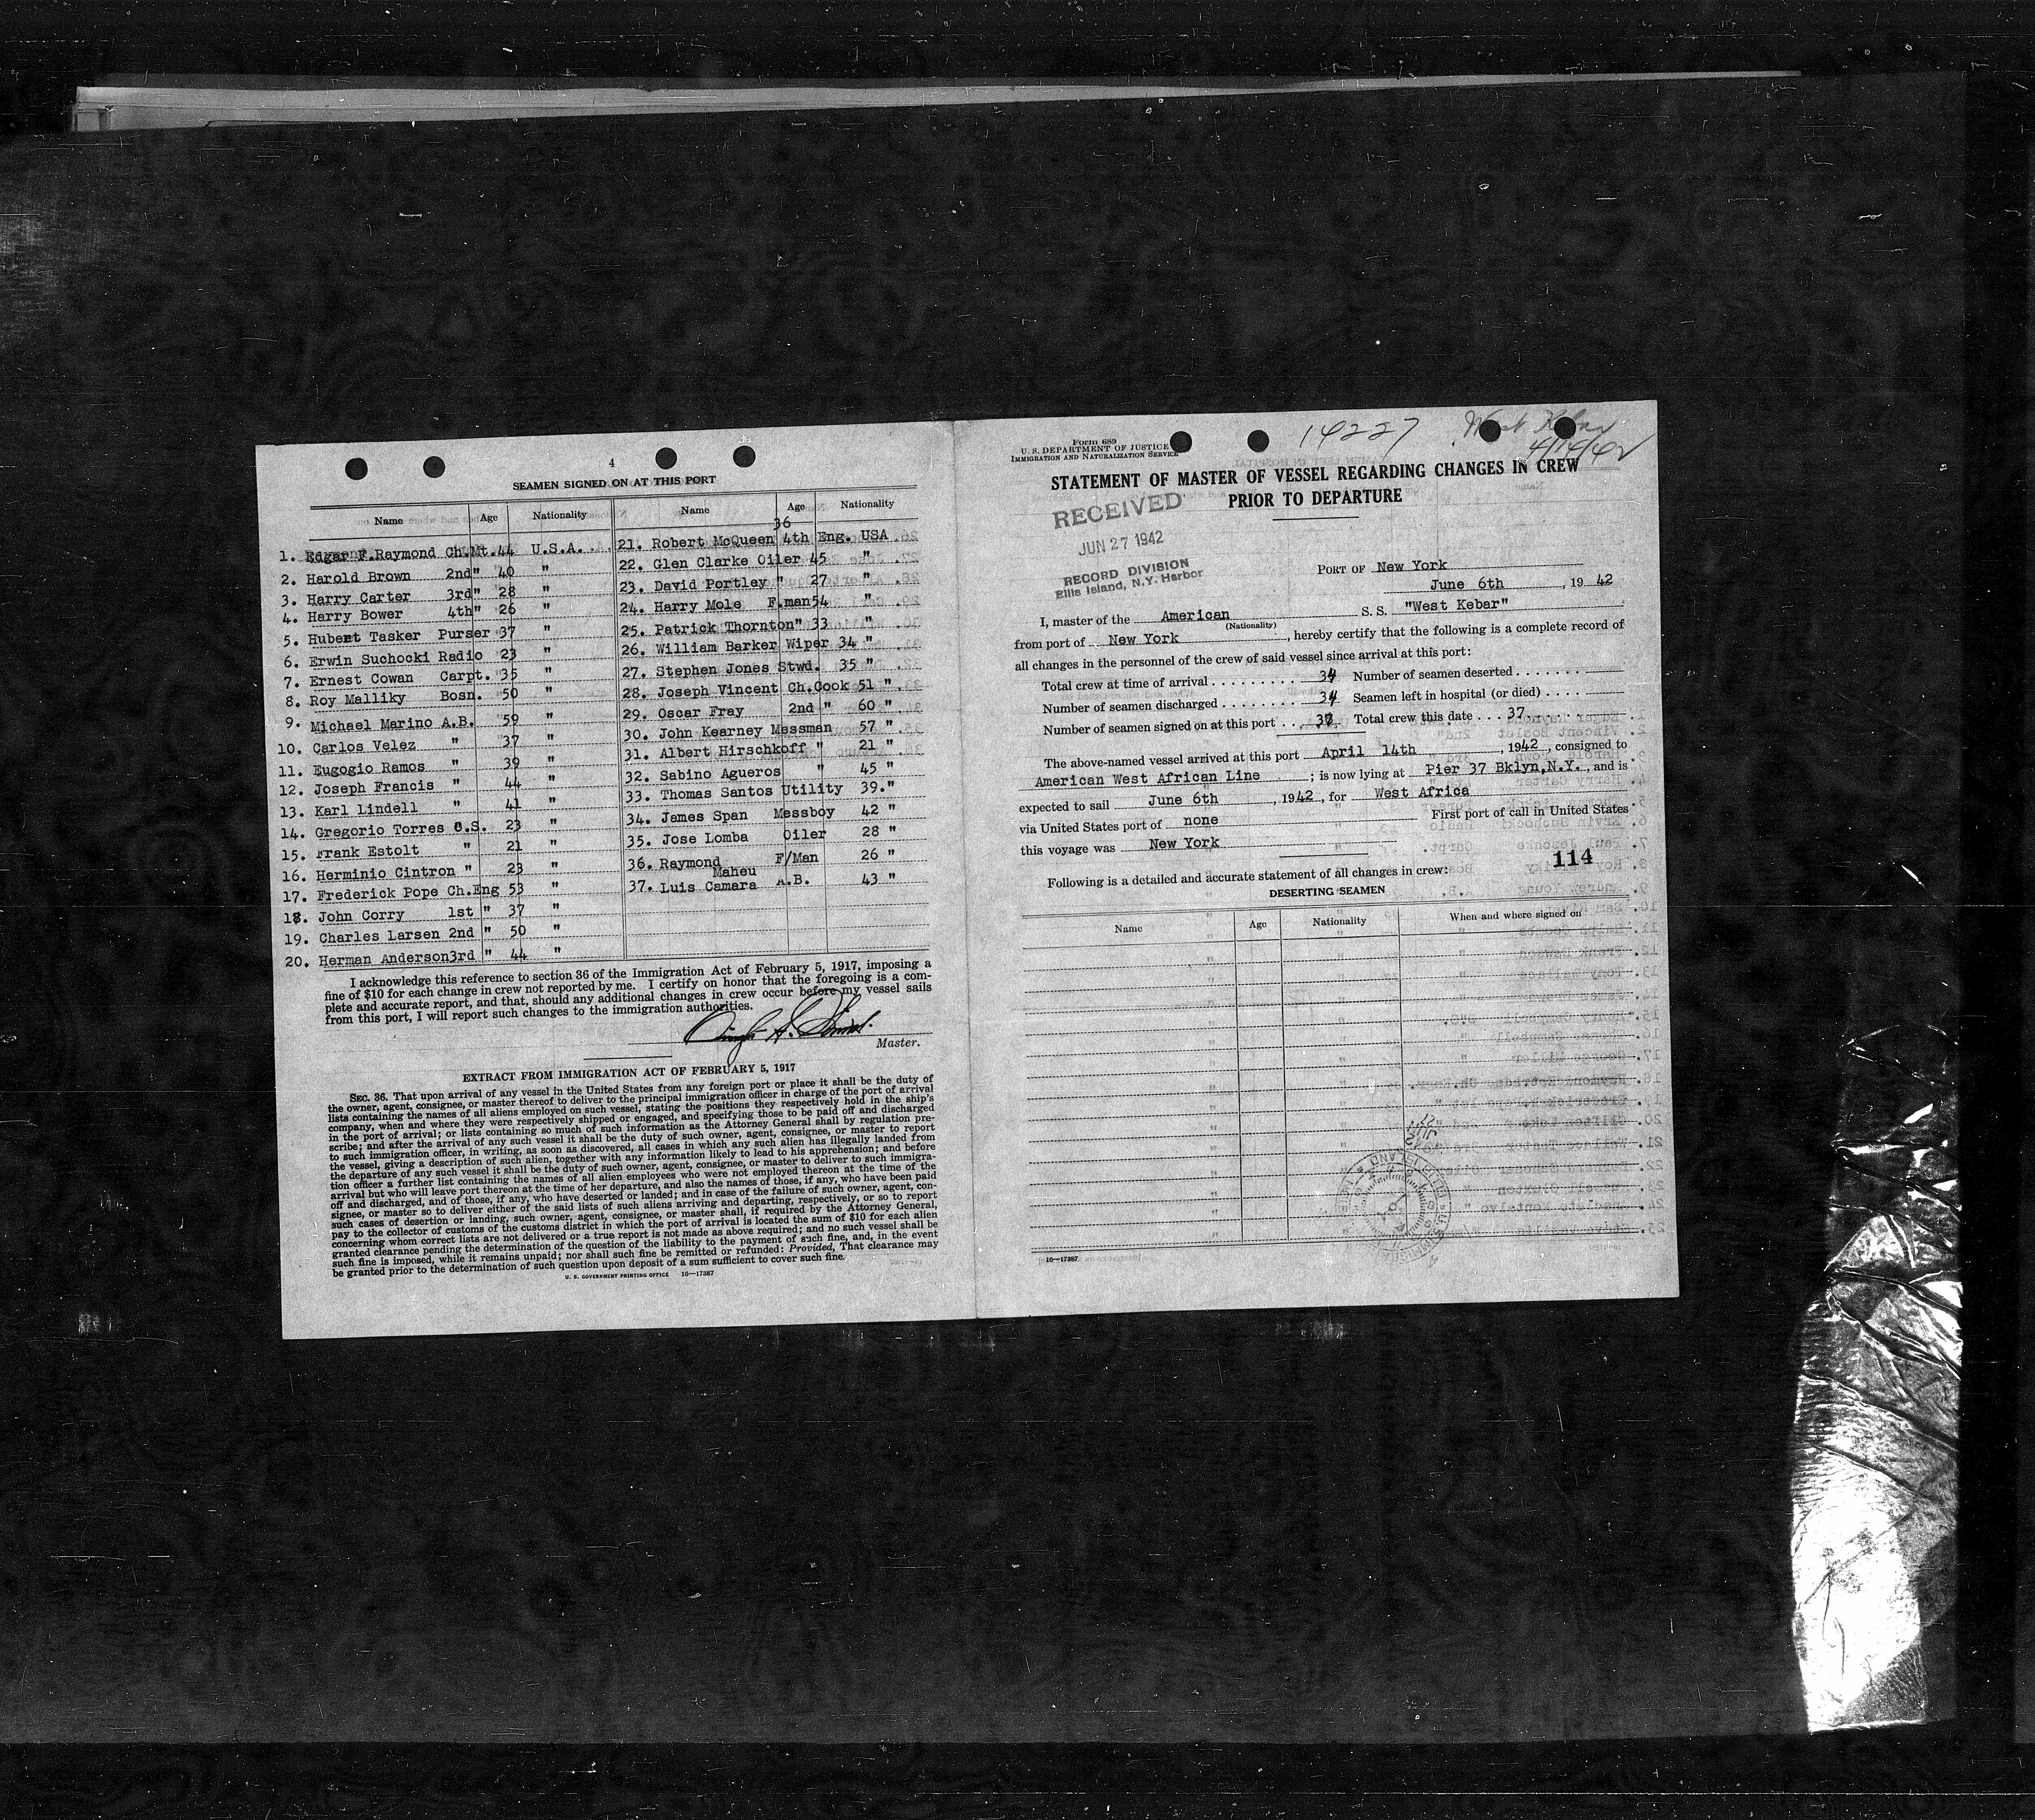 4
SEAMEN SIGNED ON AT THIS PORT
Name Age Nationality Name Age Nationality
36
1. Edgar F.Raymond Ch.Mt.44 U.S.A.
2. Harold Brown 2nd" 40 "
3. Harry Carter 3rd" 28 "
4. Harry Bower 4th" 26 "
5. Hubert Tasker Purser 37 "
6. Erwin Suchocki Radio 23 "
7. Ernest Cowan Carpt. 35 "
8. Roy Malliky Bosn. 50 "
9. Michael Marino A.B. 59 "
10. Carlos Velez " 37 "
11. Eugogio Ramos " 39 "
12. Joseph Francis " 44 "
13. Karl Lindell " 41 "
14. Gregorio Torres O.S. 23 "
15. Frank Estolt " 21 "
16. Herminio Cintron " 23 "
17. Frederick Pope Ch.Eng 53 "
18. John Corry 1st " 37 "
19. Charles Larsen 2nd " 50 "
20. Herman Anderson3rd " 44 "
21. Robert McQueen 4th Eng. USA
22. Glen Clarke Oiler 45 "
23. David Portley " 27 "
24. Harry Mole F.man54 "
25. Patrick Thornton" 33 "
26. William Barker Wiper 34 "
27. Stephen Jones Stwd. 35 "
28. Joseph Vincent Ch.Cook 51 "
29. Oscar Fray 2nd " 60 "
30. John Kearney Messman 57 "
31. Albert Hirschkoff " 21 "
32. Sabino Agueros " 45 "
33. Thomas Santos Utility 39."
34. James Span Messboy 42 "
35. Jose Lomba Oiler 28 "
36. Raymond F/Man 26 "
Maheu
37. Luis Camara A.B. 43 "
I acknowledge this reference to section 36 of the Immigration Act of February 5, 1917, imposing a
fine of $10 for each change in crew not reported by me. I certify on honor that the foregoing is a com-
plete and accurate report, and that, should any additional changes in crew occur before my vessel sails
from this port, I will report such changes to the immigration authorities.
Master.
EXTRACT FROM IMMIGRATION ACT OF FEBRUARY 5, 1917
SEC. 36. That upon arrival of any vessel in the United States from any foreign port or place it shall be the duty of
the owner, agent, consignee, or master thereof to deliver to the principal immigration officer in charge of the port of arrival
lists containing the names of all aliens employed on such vessel, stating the positions they respectively hold in the ship's
company, when and where they were respectively shipped or engaged, and specifying those to be paid off and discharged
in the port of arrival; or lists containing so much of such information as the Attorney General shall by regulation pre-
scribe; and after the arrival of any such vessel it shall be the duty of such owner, agent, consignee, or master to report
to such immigration officer, in writing, as soon as discovered, all cases in which any such alien has illegally landed from
the vessel, giving a description of such alien, together with any information likely to lead to his apprehension; and before
the departure of any such vessel it shall be the duty of such owner, agent, consignee, or master to deliver to such immigra-
tion officer a further list containing the names of all alien employees who were not employed thereon at the time of the
arrival but who will leave port thereon at the time of her departure, and also the names of those, if any, who have been paid
off and discharged, and of those, if any, who have deserted or landed; and in case of the failure of such owner, agent, con-
signee, or master so to deliver either of the said lists of such aliens arriving and departing, respectively, or so to report
such cases of desertion or landing, such owner, agent, consignee, or master shall, if required by the Attorney General,
pay to the collector of customs of the customs district in which the port of arrival is located the sum of $10 for each alien
concerning whom correct lists are not delivered or a true report is not made as above required; and no such vessel shall be
granted clearance pending the determination of the question of the liability to the payment of such fine, and, in the event
such fine is imposed, while it remains unpaid; nor shall such fine be remitted or refunded: Provided, That clearance may
be granted prior to the determination of such question upon deposit of a sum sufficient to cover such fine.
U. S. GOVERNMENT PRINTING OFFICE 16—17387
Form 689
U. S. DEPARTMENT OF JUSTICE
IMMIGRATION AND NATURALIZATION SERVICE
14227
West Kebar
4/14/42
STATEMENT OF MASTER OF VESSEL REGARDING CHANGES IN CREW
PRIOR TO DEPARTURE
RECEIVED
JUN 27 1942
RECORD DIVISION
Ellis Island, N.Y. Harbor
PORT OF New York
June 6th, 1942
I, master of the American S. S. "West Kebar"
(Nationality)
from port of New York, hereby certify that the following is a complete record of
all changes in the personnel of the crew of said vessel since arrival at this port:
Total crew at time of arrival 34 Number of seamen deserted
Number of seamen discharged 34 Seamen left in hospital (or died)
Number of seamen signed on at this port 37 Total crew this date 37.
The above-named vessel arrived at this port April 14th, 1942, consigned to
American West African Line; is now lying at Pier 37 Bklyn,N.Y., and is
expected to sail June 6th, 1942, for West Africa
via United States port of none First port of call in United States
this voyage was New York
114
Following is a detailed and accurate statement of all changes in crew:
DESERTING SEAMEN
Name Age Nationality When and where signed on
16—17387